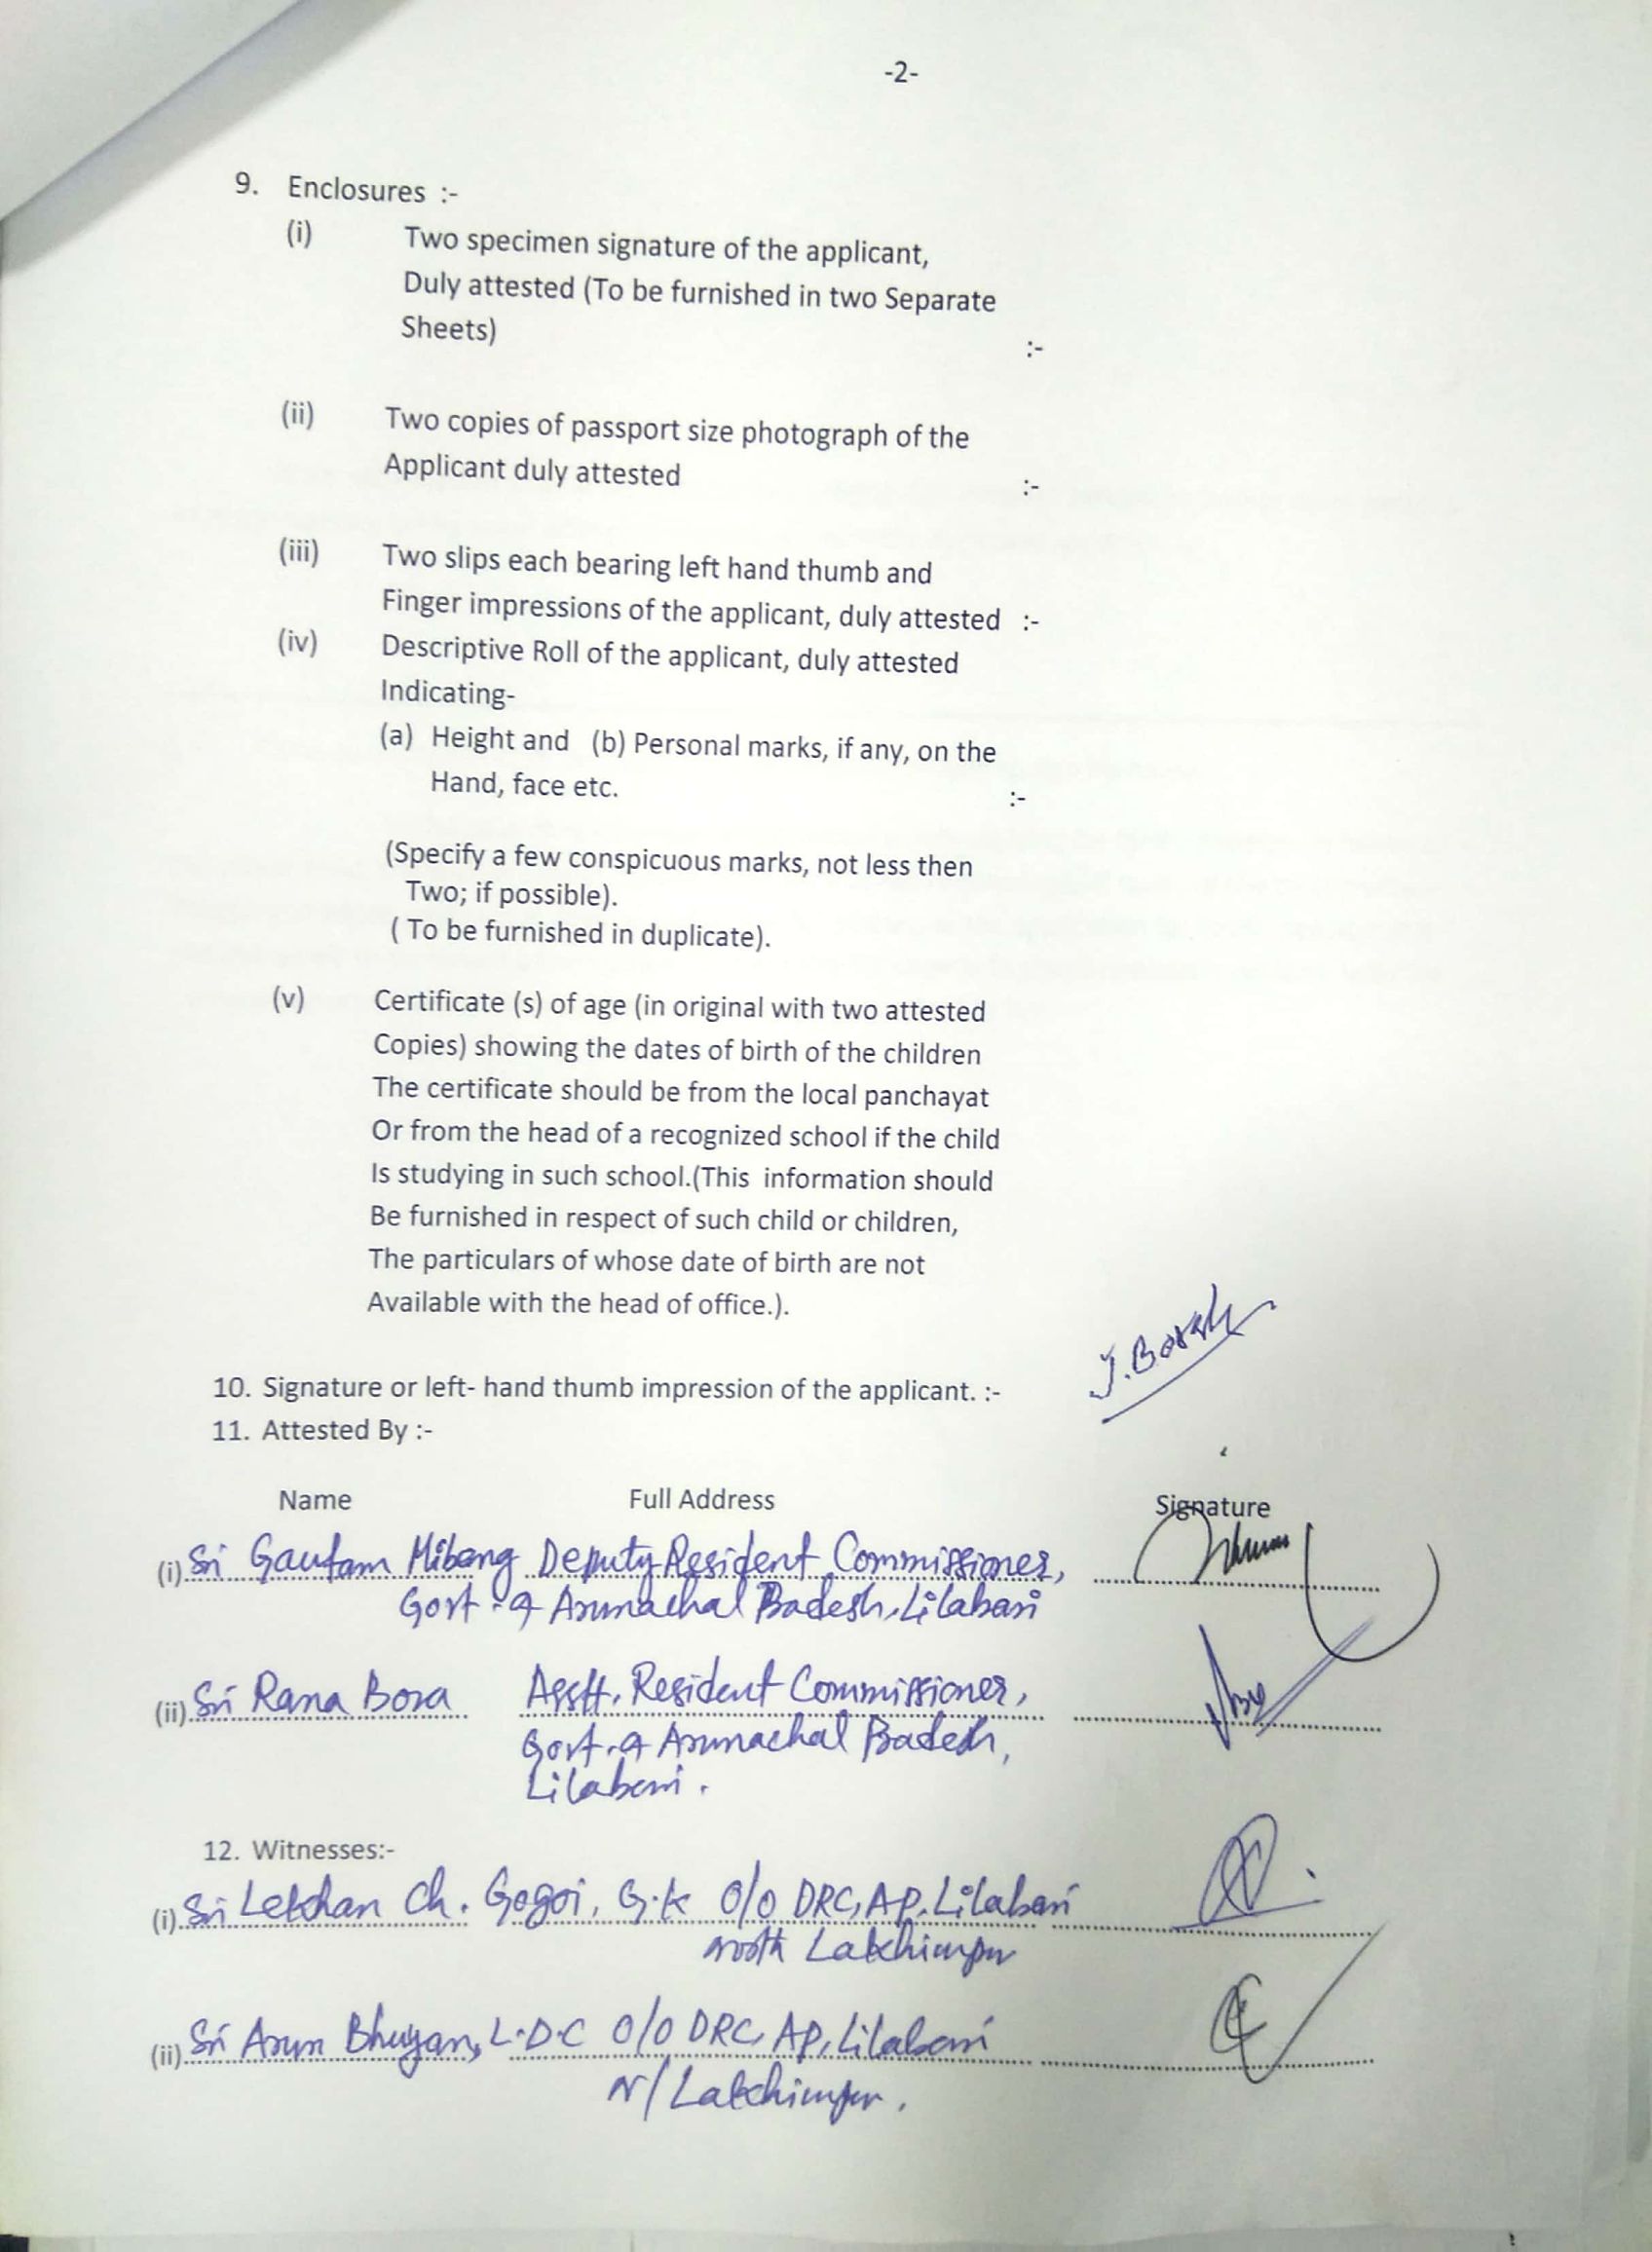 -2-
9. Enclosures :-
(i) Two specimen signature of the applicant,
Duly attested (To be furnished in two Separate
Sheets)
:-
(ii) Two copies of passport size photograph of the
Applicant duly attested :-
(iii) Two slips each bearing left hand thumb and
Finger impressions of the applicant, duly attested :-
(iv) Descriptive Roll of the applicant, duly attested
Indicating-
(a) Height and (b) Personal marks, if any, on the
Hand, face etc. :-
(Specify a few conspicuous marks, not less then
Two; if possible).
( To be furnished in duplicate).
(v) Certificate (s) of age (in original with two attested
Copies) showing the dates of birth of the children
The certificate should be from the local panchayat
Or from the head of a recognized school if the child
Is studying in such school.(This information should
Be furnished in respect of such child or children,
The particulars of whose date of birth are not
Available with the head of office.).
J. Borah
10. Signature or left- hand thumb impression of the applicant. :-
11. Attested By :-
Name Full Address Signature
(i) Sri Gautam Mibang Deputy Resident Commissioner,
Govt. of Arunachal Pradesh, Lilabari
(ii) Sri Rana Bora Asstt. Resident Commissioner,
Govt. of Arunachal Pradesh,
Lilabari.
12. Witnesses:-
(i) Sri Lekhan Ch. Gogoi, G.K O/O DRC, AP, Lilabari
North Lakhimpur
(ii) Sri Arun Bhuyan, L.D.C O/O DRC, AP, Lilabari
N/Lakhimpur.